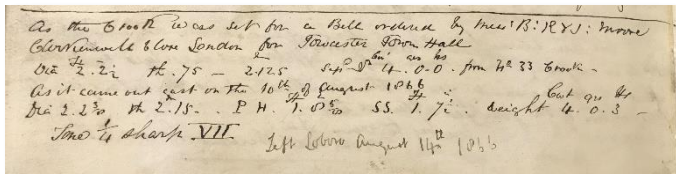 As the Crook was set for a Bell ordered by Mess: B: R & J: Moore
Clerkenwell Close London for Towcester Town Hall
Dia 2.2½ th .75 – 2.125 4.0.0. from No 33 Crook –
As it came out cast on the 10th of August 1866 Cwt qrs lbs
Dia 2.2⅜ th 2.15. P H. 1.8⅝ SS. 1.7½ . weight 4.0.3 –
Tone ¼ sharp VII
Left Loboro August 14th 1866